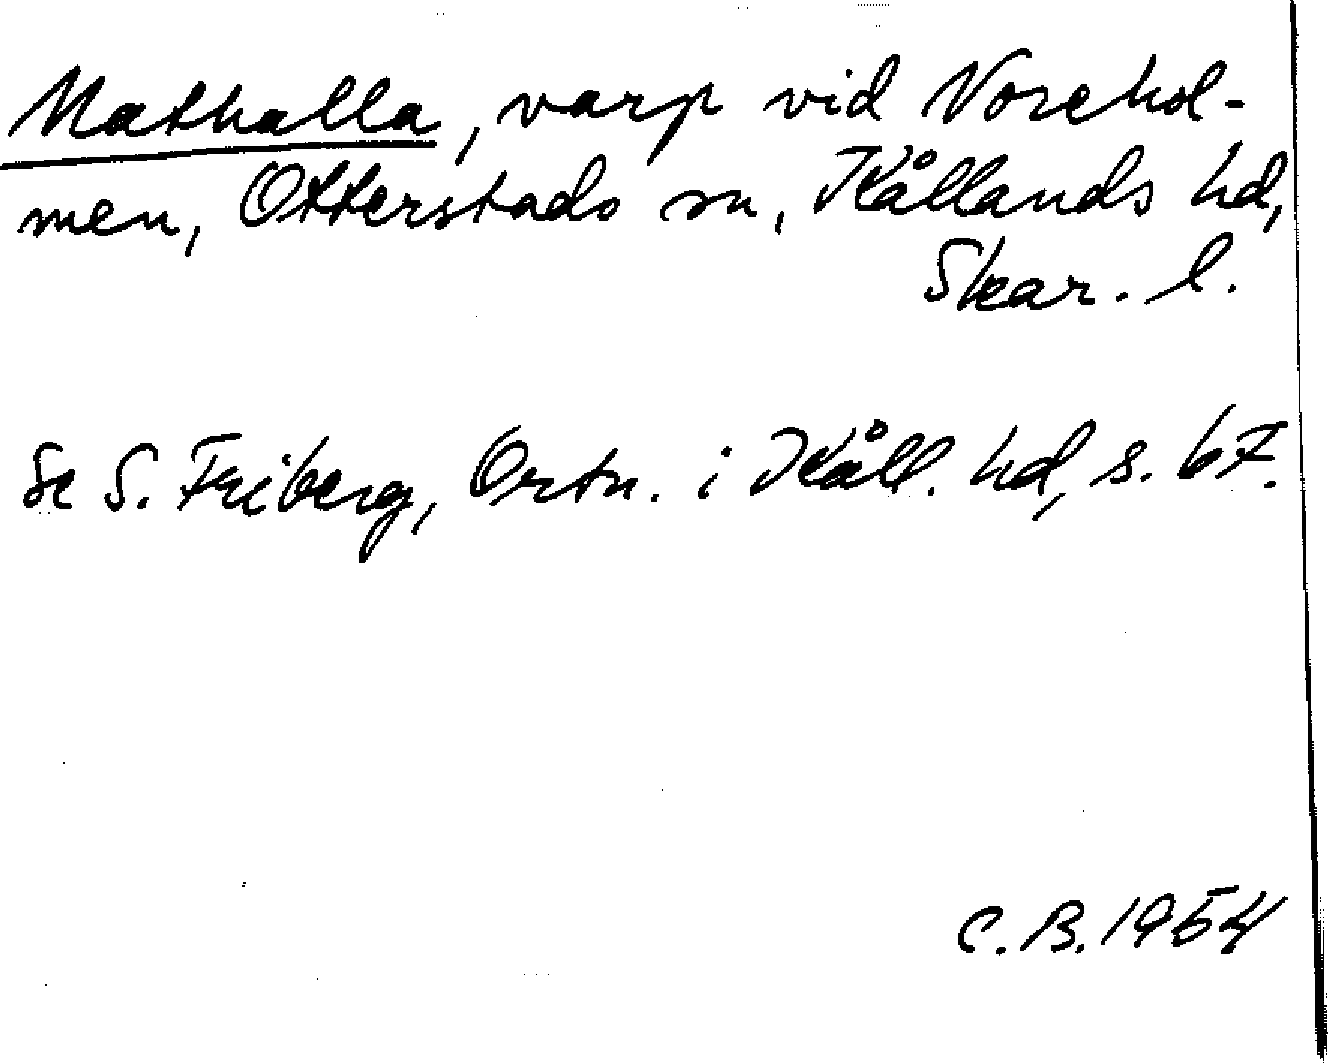 Mathalla, varp vid Vorehol-
men, Otterstads sn, Kållands hd,
Skar. l.
Se S. Friberg, Ortn. i Kåll. hd, s. 67.
C.B. 1954